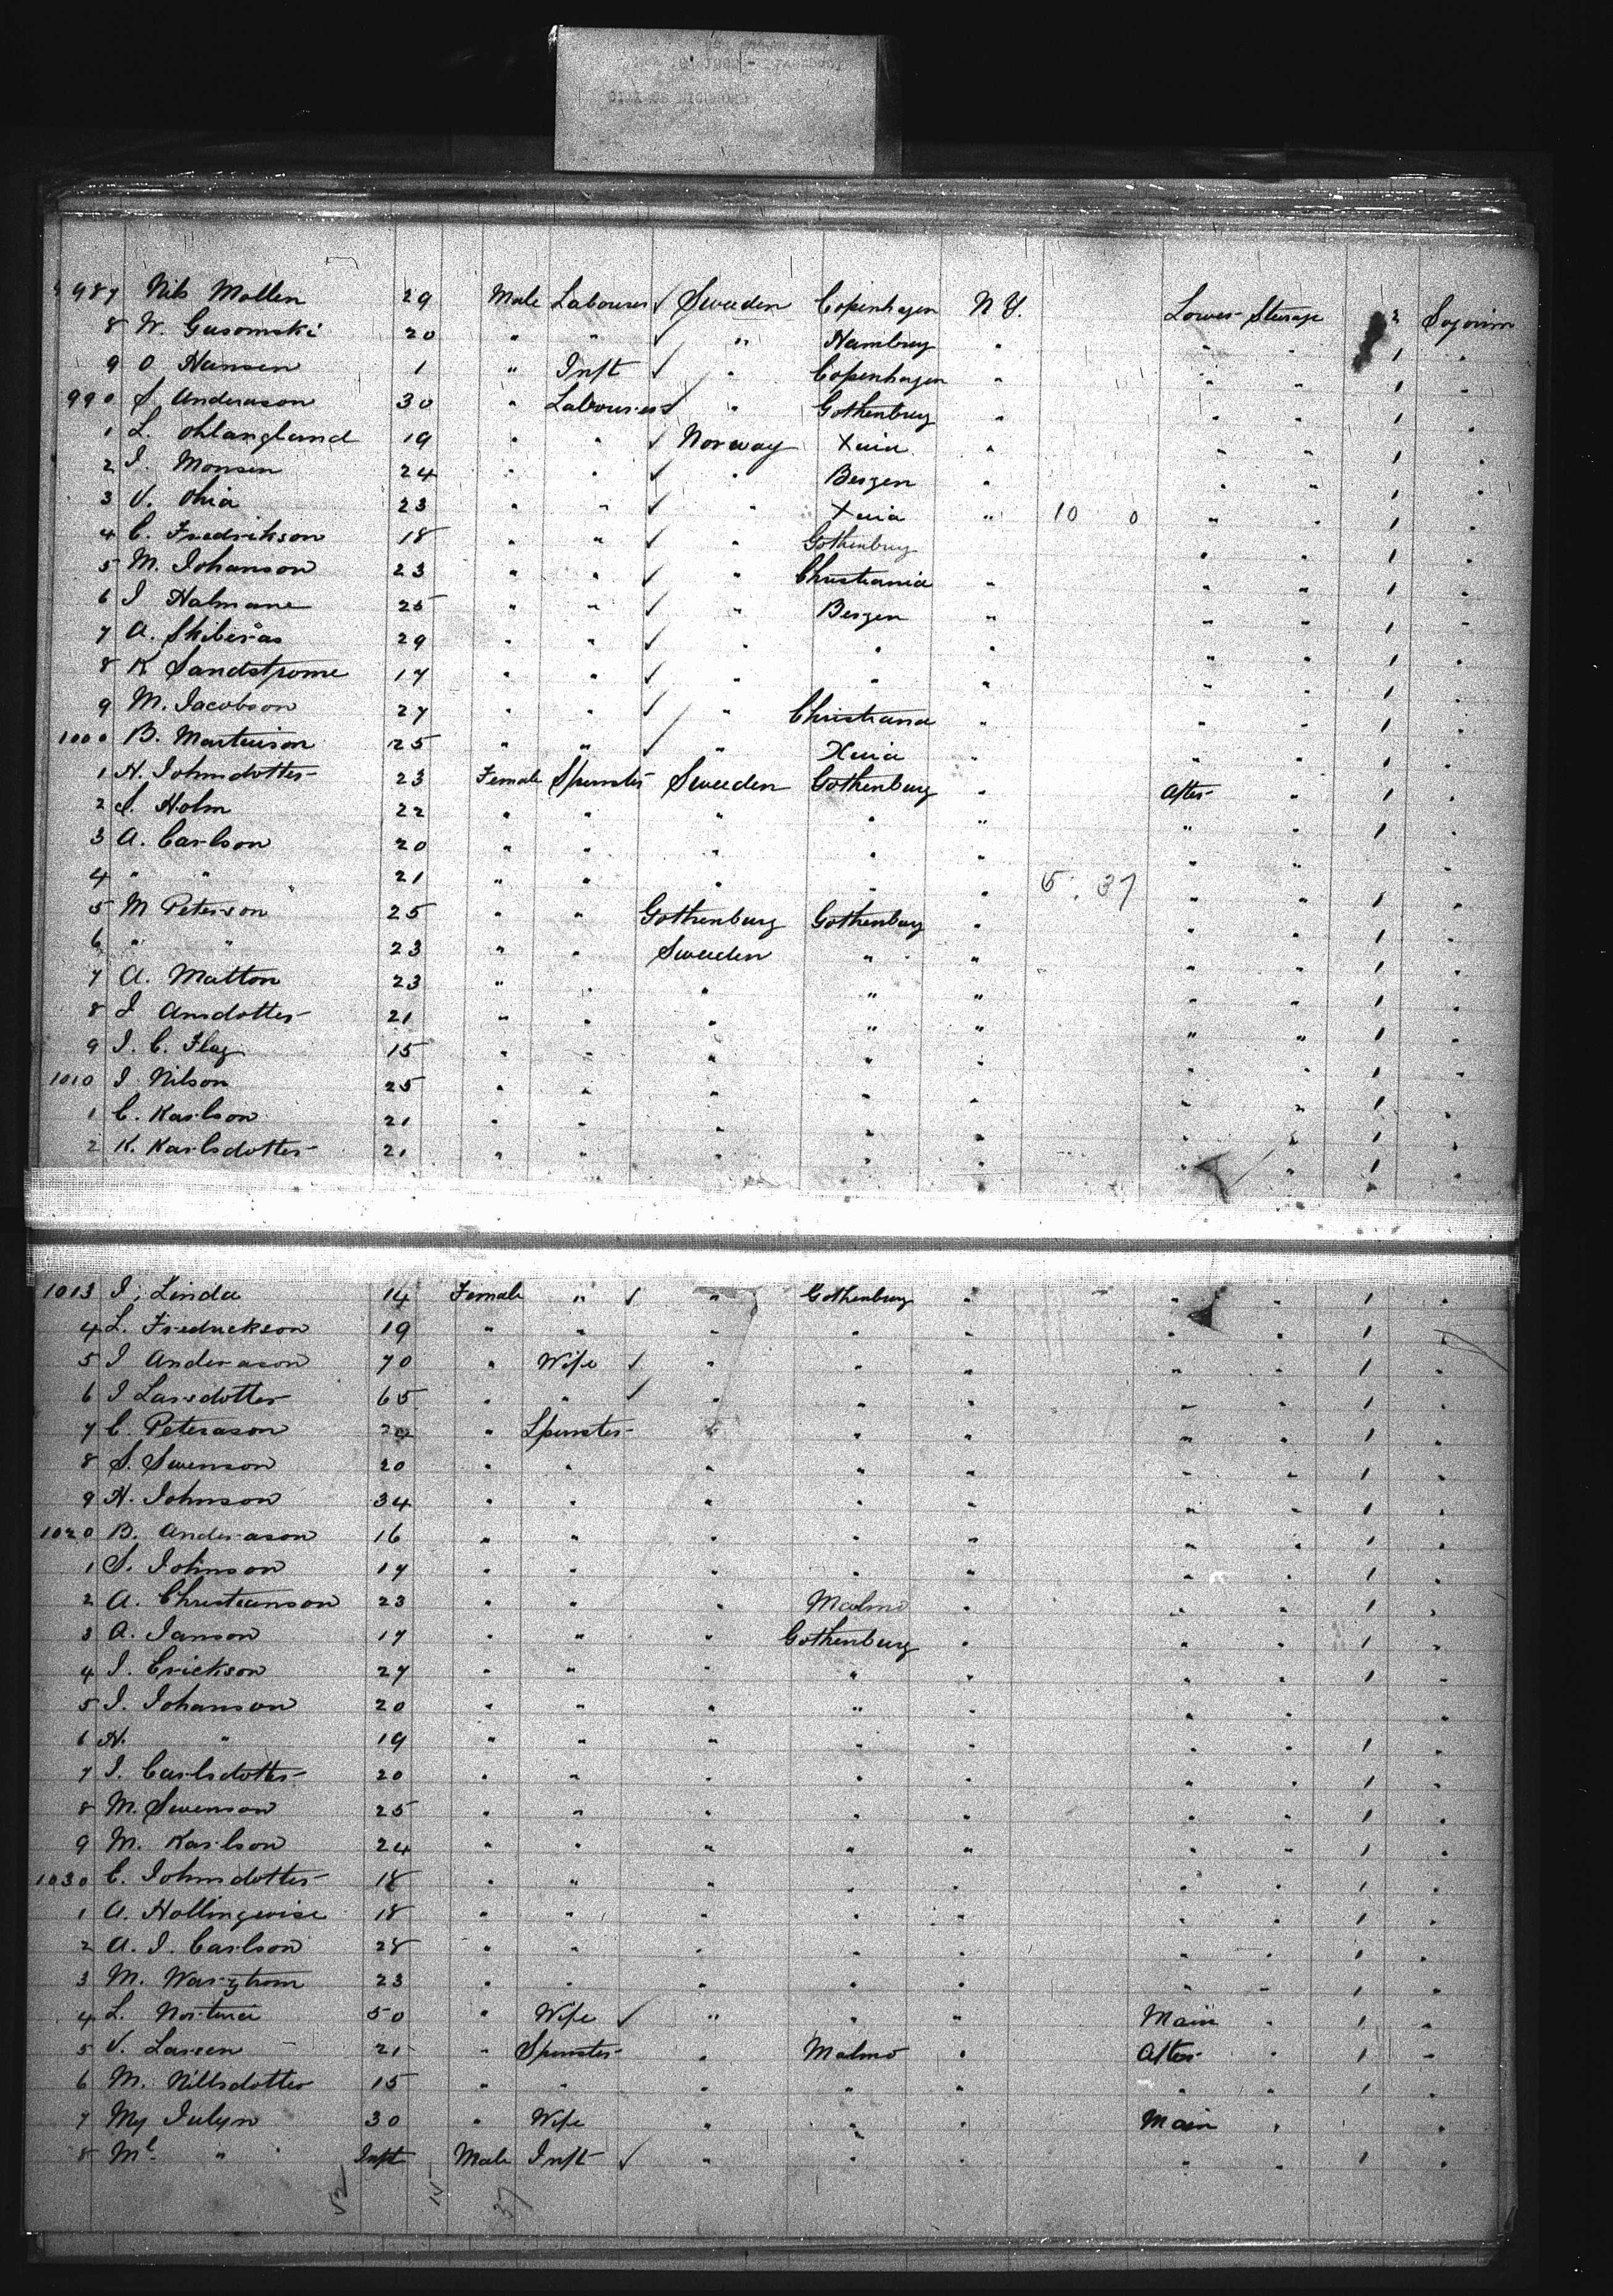 987 Nils Mollen 29 Male Labourer ✓ Sweden Copenhagen N Y. Lower Steerage 2 Sojourn
8 W. Gusomski 20 " " ✓ " Hamburg " " " 1 "
9 O Hansen 1 " Inft ✓ " Copenhagen " " " 1 "
990 S Anderason 30 " Labourer ✓ " Gothenburg " " " 1 "
1 L. Ohlangland 19 " " ✓ Norway Xnia " " " 1 "
2 I. Monsen 24 " " ✓ " Bergen " " " 1 "
3 V. Ohia 23 " " ✓ " Xnia " 10 0 " " 1 "
4 C. Fredrikson 18 " " ✓ " Gothenburg " " 1 "
5 M. Johanson 23 " " ✓ " Christiania " " " 1 "
6 I Halmane 25 " " ✓ " Bergen " " " 1 "
7 A. Skiberas 29 " " ✓ " " " " " 1 "
8 K Sandstrome 17 " " ✓ " " " " " 1 "
9 M. Jacobson 27 " " ✓ " Christiana " " " 1 "
1000 B. Martinson 25 " " ✓ " Xnia " " " 1 "
1 H. Johnsdotter 23 Female Spinster Sweden Gothenburg " After " 1 "
2 S. Holm 22 " " " " " " " 1 "
3 A. Carlson 20 " " " " " " " "
4 " " 21 " " " " " 5. 37 " " 1 "
5 M Peterson 25 " " Gothenburg Gothenburg " " " 1 "
6 " " 23 " " Sweden " " " " 1 "
7 A. Matton 23 " " " " " " " 1 "
8 I Ansdotter 21 " " " " " " " 1 "
9 I. C. Flag 15 " " " " " " " 1 "
1010 I Nilson 25 " " " " " " " 1 "
1 C. Karlson 21 " " " " " " " 1 "
2 K. Karlsdotter 21 " " " " " " " 1 "
1013 I. Linda 14 Female " ✓ " Gothenburg " " " 1 "
4 L. Fredrickson 19 " " " " " " " 1 "
5 I Anderason 70 " Wife ✓ " " " " " 1 "
6 I Larsdotter 65 " " ✓ " " " " " 1 "
7 C. Peterason " Spinster " " " " " 1 "
8 S. Swenson 20 " " " " " " " 1 "
9 H. Johnson 34 " " " " " " " 1 "
1020 B. Anderason 16 " " " " " " " 1 "
1 S. Johnson 17 " " " " " " " 1 "
2 A. Christianson 23 " " " Malmo " " " 1 "
3 A. Janson 17 " " " Gothenburg " " " 1 "
4 I. Erickson 27 " " " " " " " 1 "
5 I. Johanson 20 " " " " " " " "
6 H. " 19 " " " " " " " 1 "
7 I. Carlsdotter 20 " " " " " " " 1 "
8 M. Swenson 25 " " " " " " " 1 "
9 M. Karlson 24 " " " " " " " 1 "
1030 C. Johnsdotter 18 " " " " " " " 1 "
1 A. Hollingwise 18 " " " " " " " 1 "
2 A. I. Carlson 28 " " " " " " " 1 "
3 M. Wargtrom 23 " " " " " " " 1 "
4 L. Norteria 50 " Wife ✓ " " " Main " 1 "
5 V. Larsen 21 " Spinster " Malmo " After " 1 "
6 M. Nillsdotter 15 " " " " " " " 1 "
7 My Julyn 30 " Wife " " " Main " "
8 Ml. " Inft Male Inft ✓ " " " " " 1 "
15 37